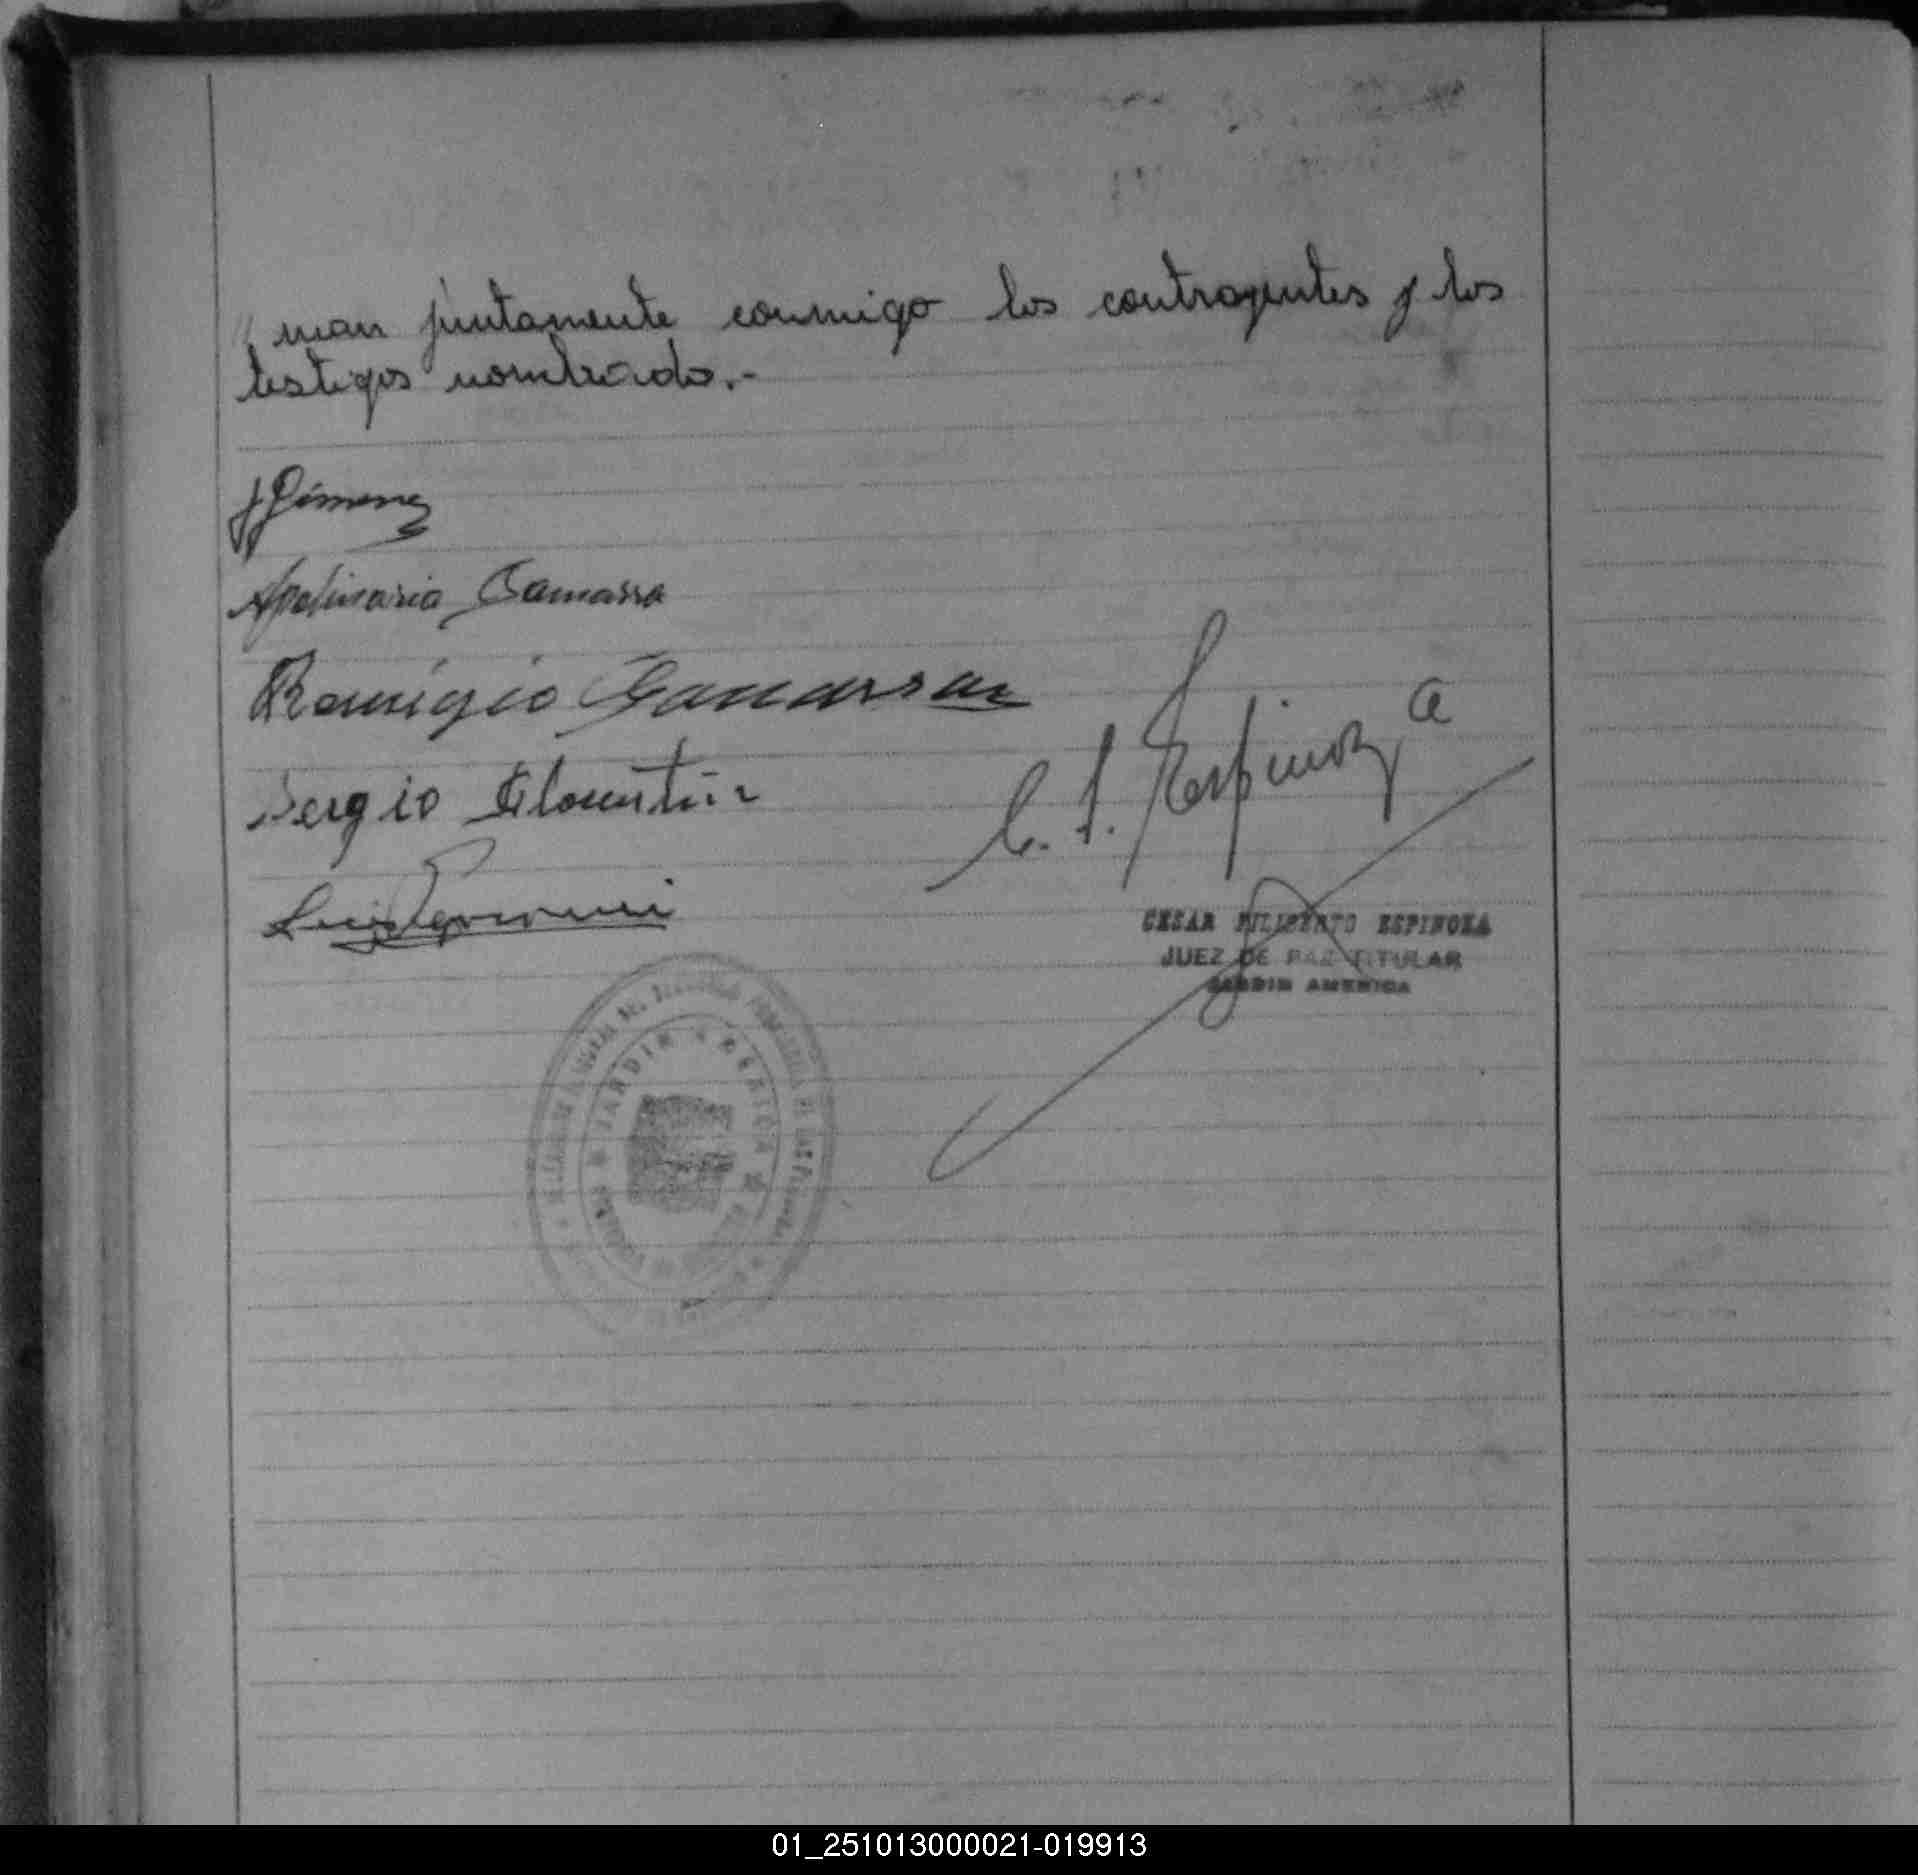 " man juntamente conmigo los contrayentes y los
testigos nombrado.-
J Gimenez
Apolinaria Gamarra
Remigio Gamarra
Sergio Florentin
Luis
C. F. Espinoza
CESAR FILIBERTO ESPINOZA
JUEZ DE PAZ TITULAR
JARDIN AMERICA
JARDIN AMERICA
01_251013000021-019913